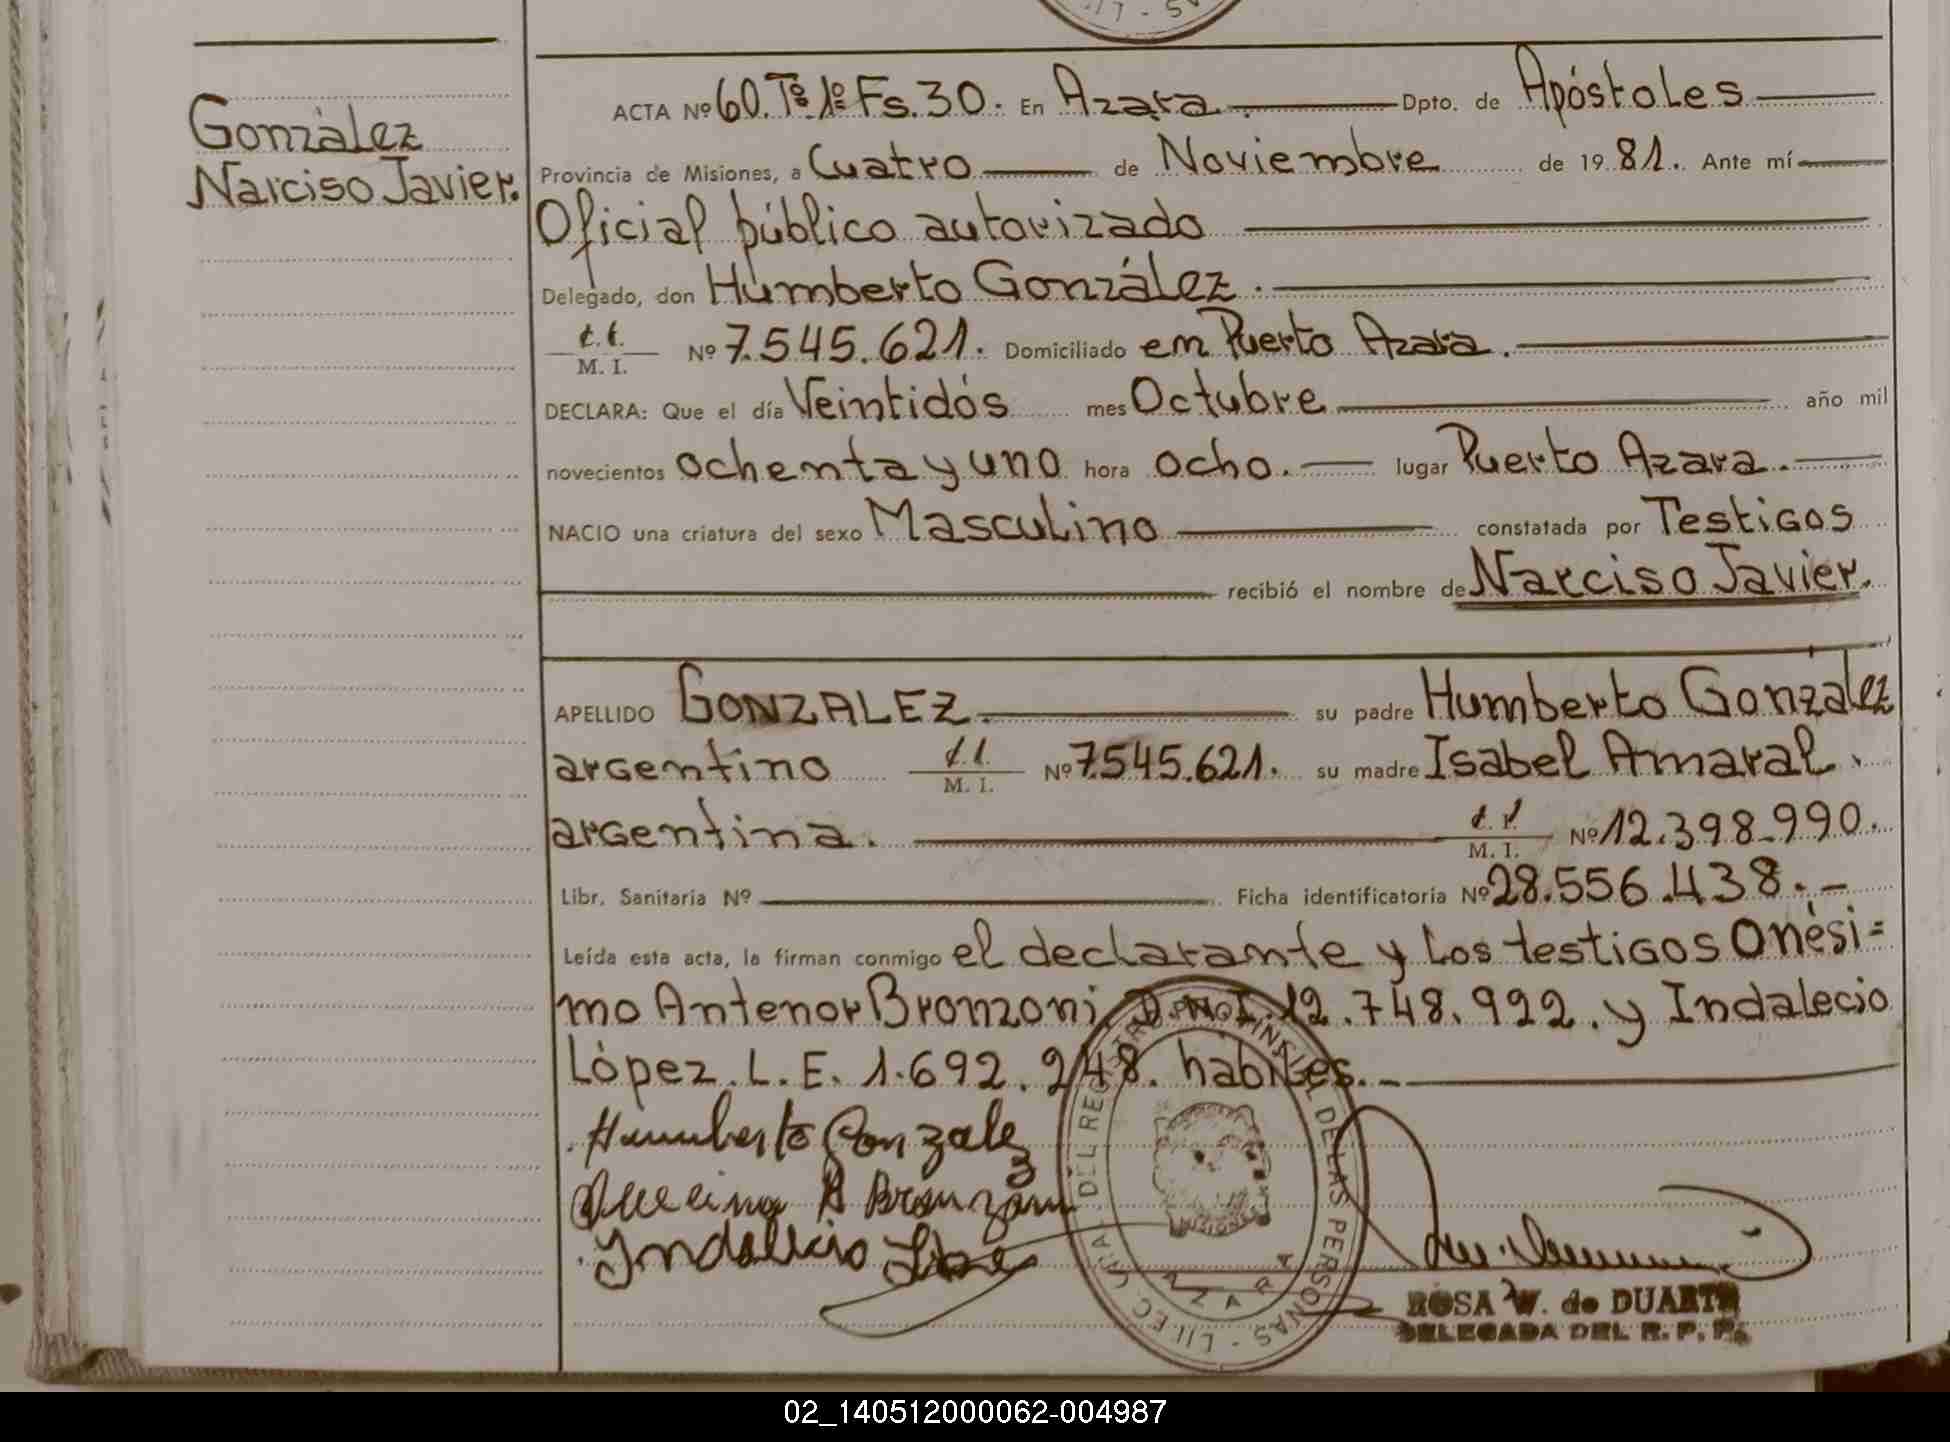 González
Narciso Javier.
ACTA Nº 60. Tº. 1º Fs. 30. En Azara. Dpto. de Apóstoles
Provincia de Misiones, a Cuatro de Noviembre de 1981. Ante mí
Oficial público autorizado
Delegado, don Humberto González.
M. I. Nº 7.545.621. Domiciliado en Puerto Azara.
DECLARA: Que el día Veintidós mes Octubre año mil
novecientos ochenta y uno hora ocho. lugar Puerto Azara.
NACIO una criatura del sexo Masculino constatada por Testigos
recibió el nombre de Narciso Javier.
APELLIDO GONZALEZ. su padre Humberto González
argentino M. I. Nº 7.545.621. su madre Isabel Amaral
argentina. M. I. Nº 12.398.990.
Libr. Sanitaria Nº Ficha identificatoria Nº 28.556.438.-
Leída esta acta, la firman conmigo el declarante y los testigos Onési=
mo Antenor Bronzoni D.N.I. 12.748.922. y Indalecio
López. L.E. 1.692.248. habiles.-
Humberto Gonzalez
Bronzoni
Yndalecio
DEL REGISTRO PROVINCIAL DE LAS PERSONAS
AZARA
ROSA W. de DUARTE
DELEGADA DEL R. P. P.
02_140512000062-004987